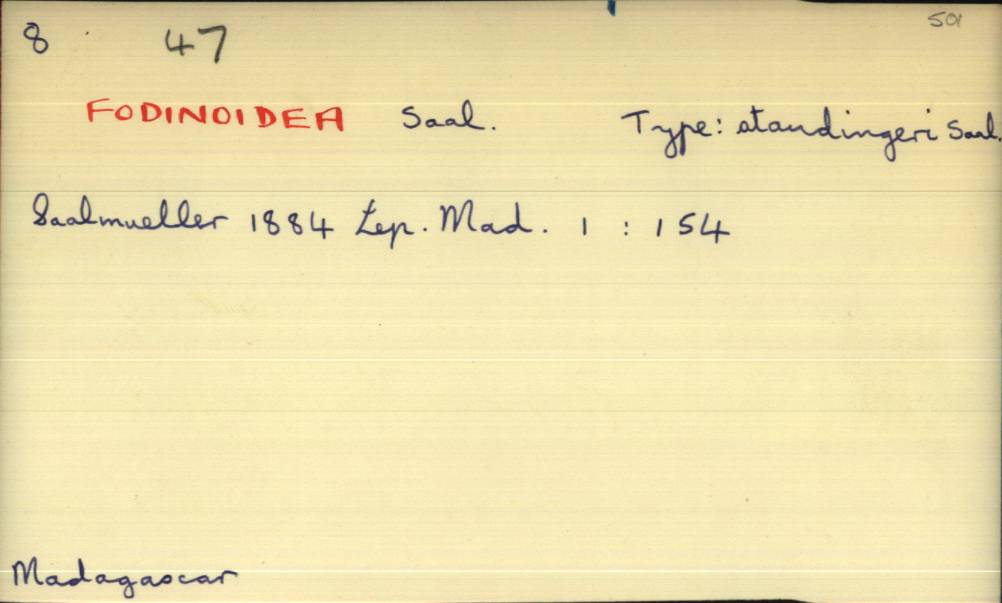 8 47 501
FODINOIDEA Saal. Type: staudingeri Saal.
Saalmueller 1884 Lep. Mad. 1 : 154
Madagascar